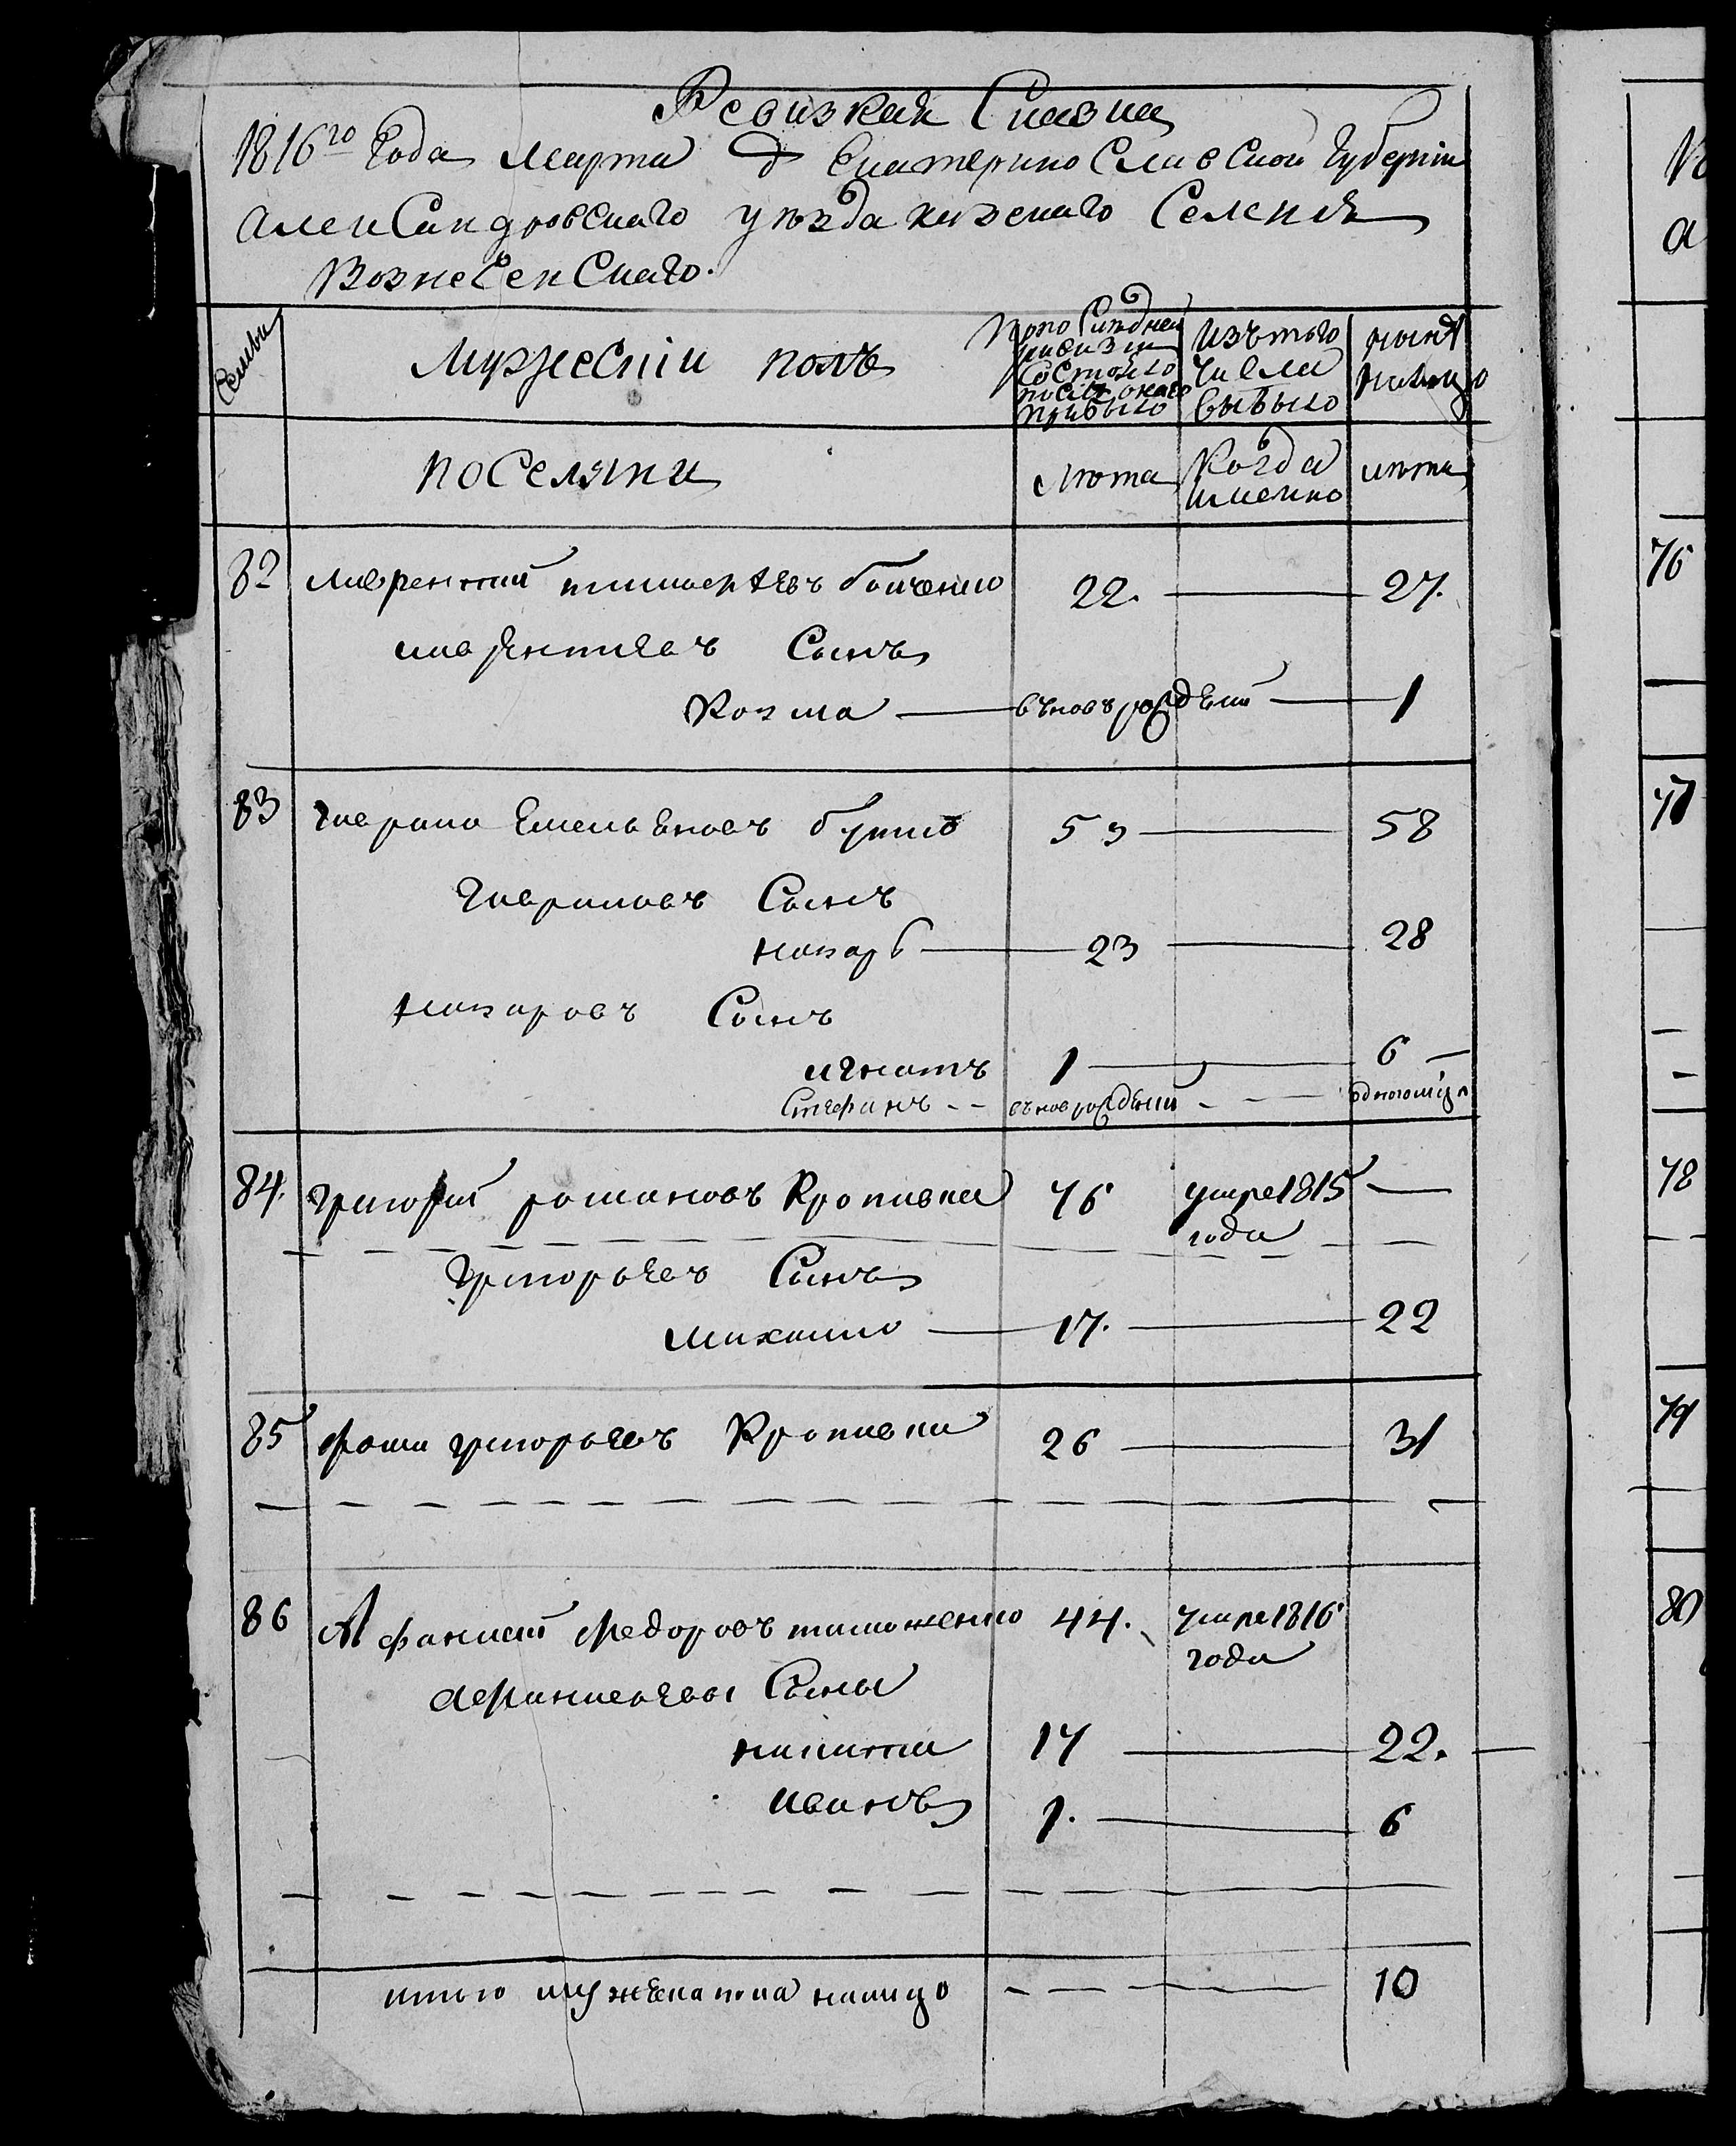 Ревизкая Сказка
1816го Года Марта Д Екатерино Славской Губернии
АлекСандровскаго уезда казенаго Селения
ВознеСенСкаго.
Семьи
Мужескій полъ
По по Следней ревизии Состояло и после оной прибыло
Изътого числа выбыло
ныне налицо
поСеляни
лета
Когда имеино
лета
82 лаврентий тимоефеевъ бойченко 22. 27.
лаврентиевъ Сынъ
Козма въновь рожденый 1
83 гаврило Емельяновъ бутко 53 58
Гавриловъ Сынъ
назаръ 23 28
назаровъ Сынъ
игнатъ 1 6
Стефанъ въновь рожденый одногомца
84. григорий романовъ Кропивка 76 умре 1815
года
Григорьевъ Сынъ
михайло 17. 22
85 фома григорьевъ Кропивка 26 31
86 Афанасий Федоровъ тимошенко 44. умре 1816
года
афанасьевы Сыны
никита 17 22.
иванъ 1. 6
итого мужеска пола налицо 10
76
77
78
79
80